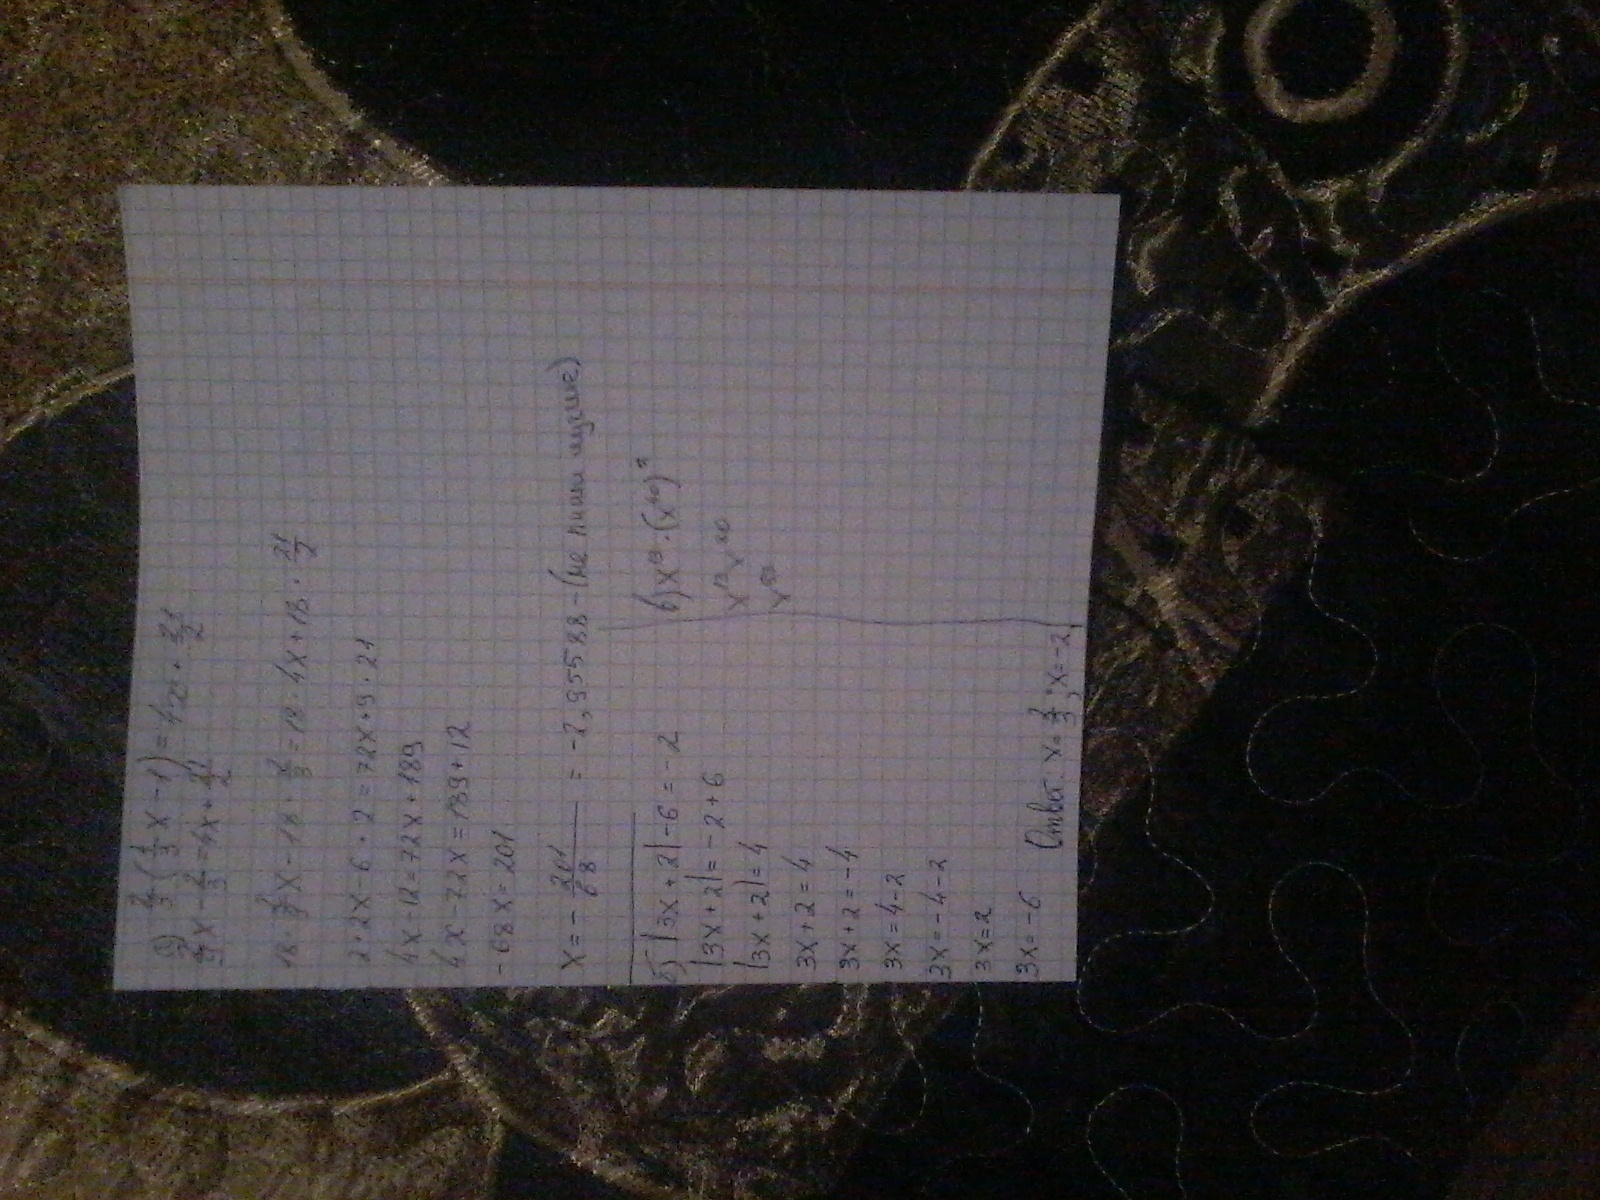 а) 2/3 (1/3 x - 1) = 4x + 21/2
2/9 x - 2/3 = 4x + 21/2
18 · 2/9 x - 18 · 2/3 = 18 · 4x + 18 · 21/2
2 · 2x - 6 · 2 = 72x + 9 · 21
4x - 12 = 72x + 189
4x - 72x = 189 + 12
-68x = 201
x = - 201/68 = -2,95588 - (не пиши лучше)
б) |3x + 2| - 6 = -2
|3x + 2| = -2 + 6
|3x + 2| = 4
3x + 2 = 4
3x + 2 = -4
3x = 4 - 2
3x = -4 - 2
3x = 2
3x = -6
Ответ: x = 2/3; x = -2